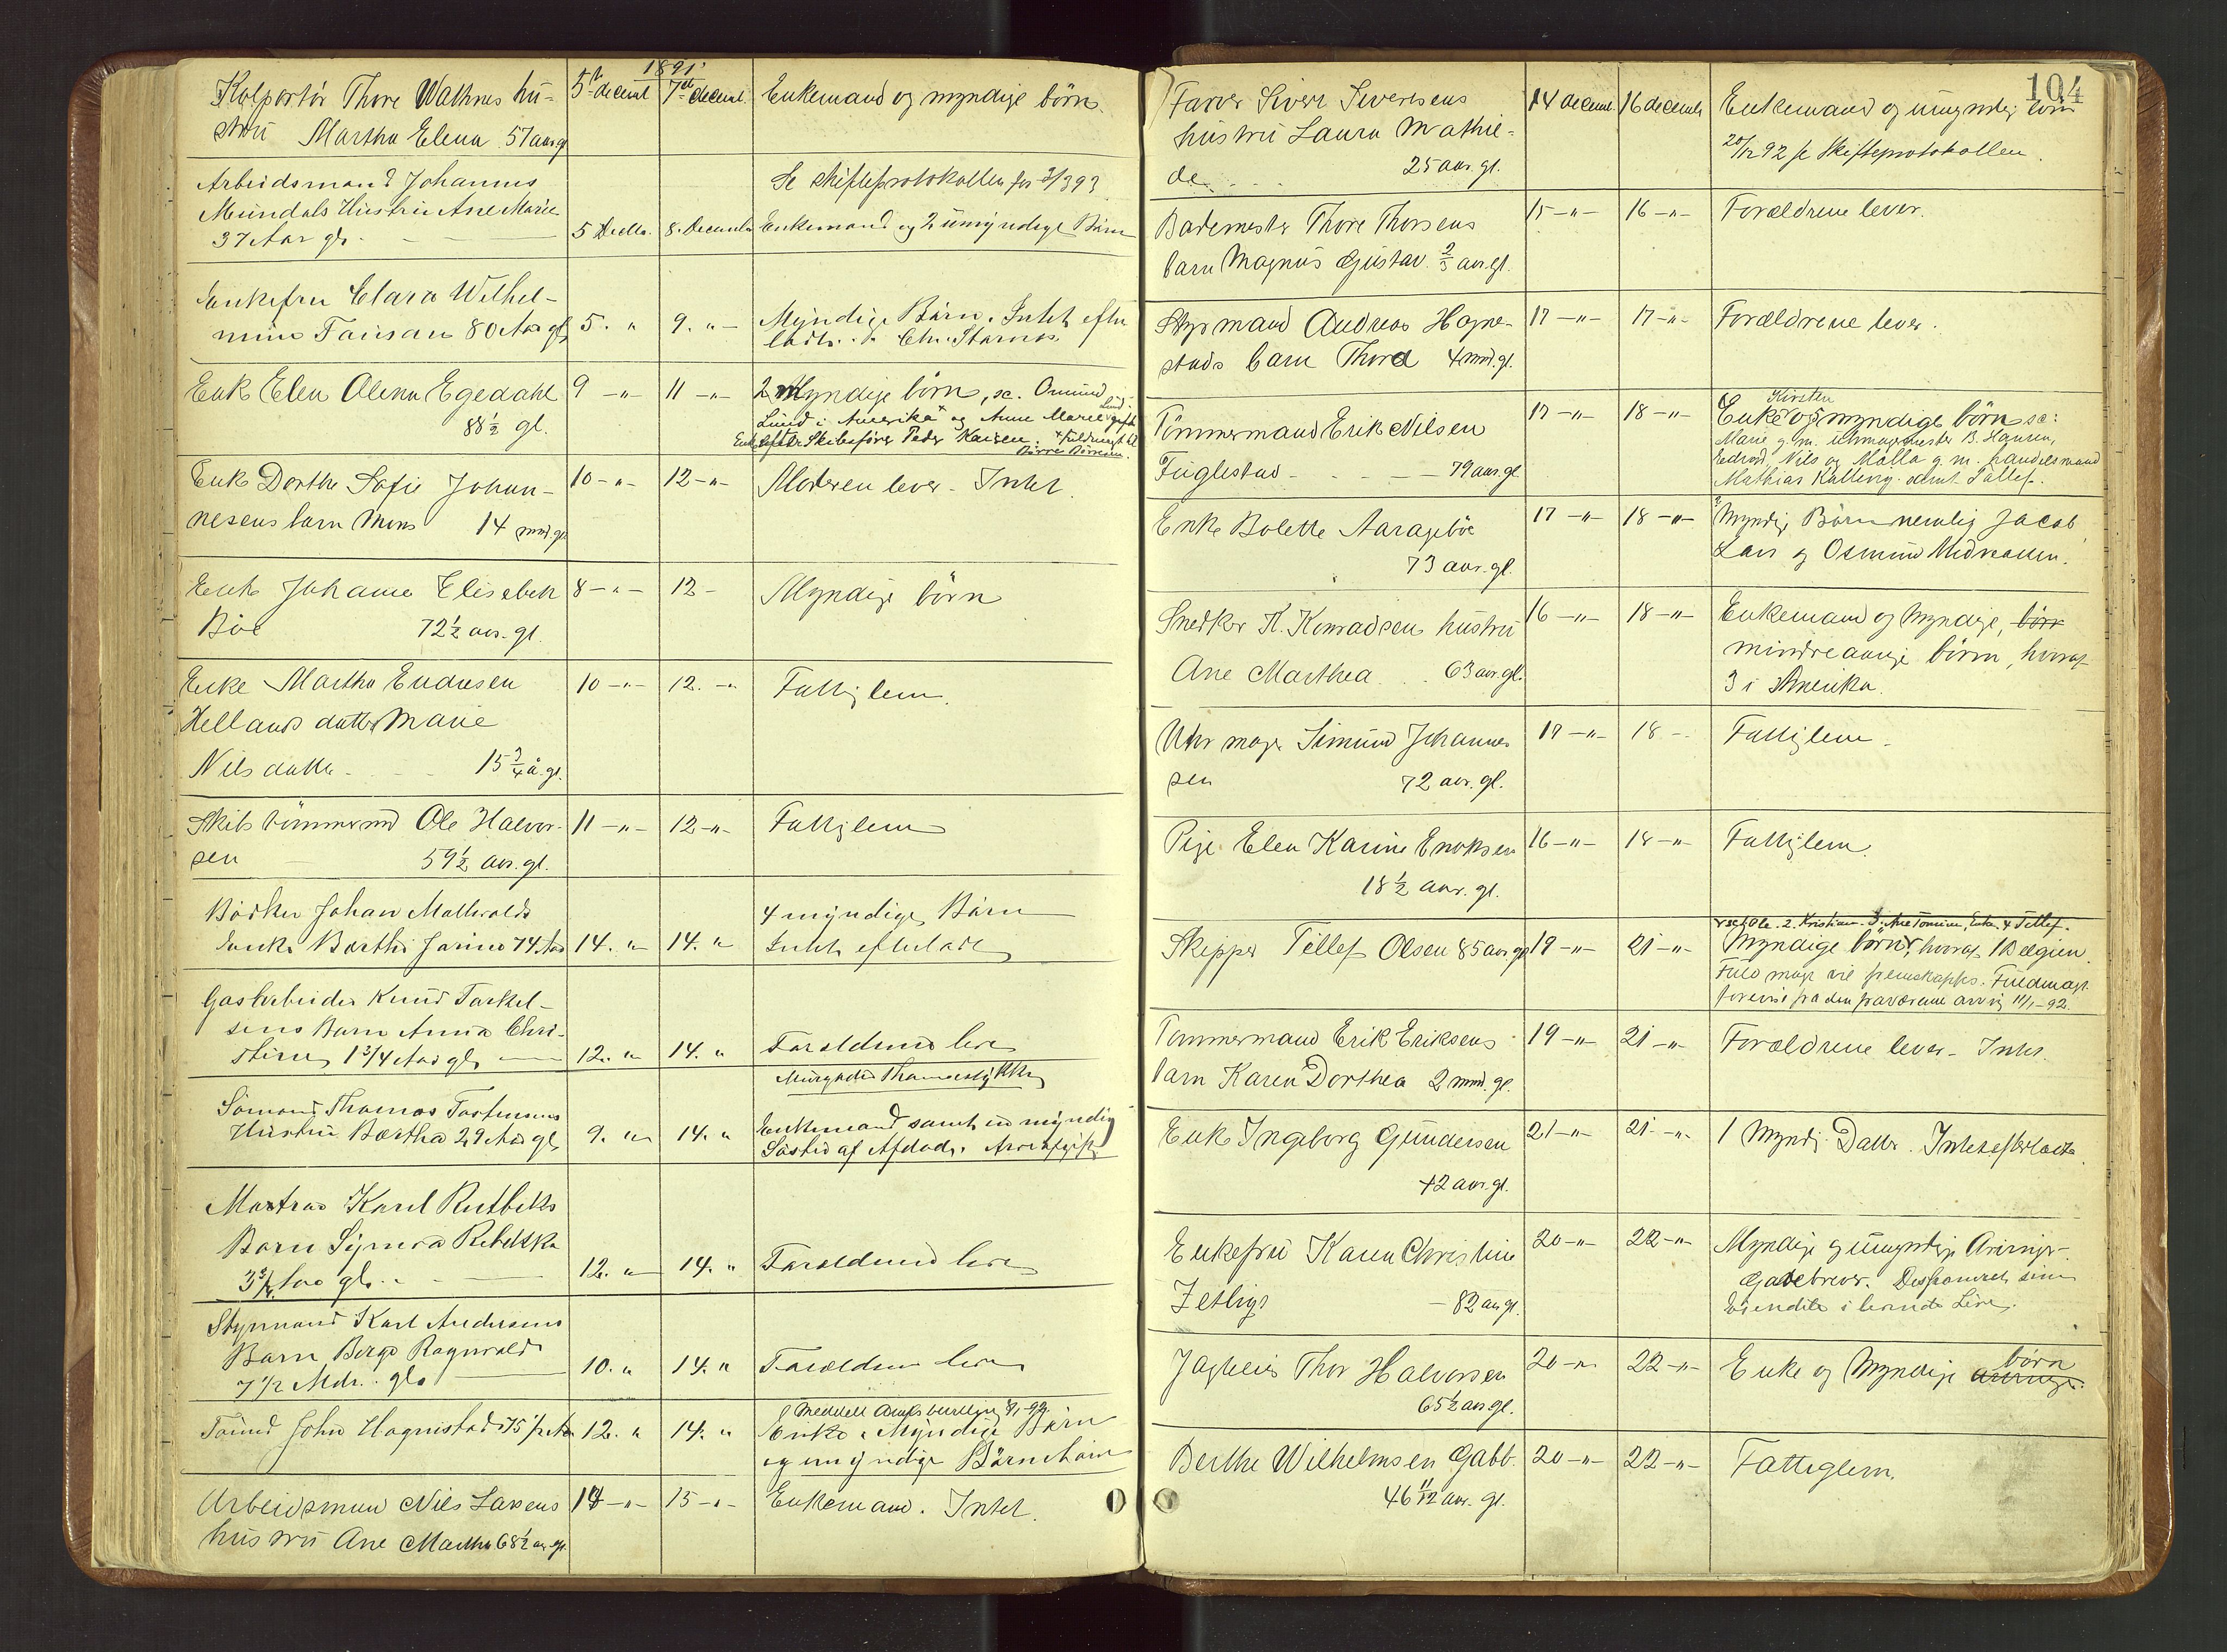 1891.
Kolportör Thore Wathnes hu-
5te decembr 7de decembr. Enkemand og myndige börn.
stru Martha Elena 57 aar gl
Arbeidsmand Johannes
Se skifteprotokollen for
Mundals Hustru Ane Marie
37 Aar gl. 5 Decbr. 8. December Enkemand og 2 umyndige Börn
Enkefru Clara Wilhel-
mine 80 Aar gl. 5. " 9. " Myndige Börn. Intet efter
ladt.
Enke Elen Olena Egedahl 9 -"- 11 -"- 2 Myndige börn, sc. Osmund
88½ gl.
Lund i Amerika og Anne Marie gift
Enke efter Skibsförer Peder
Enke Dorthe Sofie Johan- 10 -"- 12 -"- Moderen lever - Intet.
nesens barn Mons 14 mnd. gl.
Enke Johanne Elisabeth 8 -"- 12 - Myndige börn
Böe 72½ aar. gl.
Enke Martha Endresen 10 -"- 12. -"- Fattiglem.
Hellands datter Marie
Nilsdatter 15¾ å. gl.
Skibstömmermd Ole Halvor- 11 -"- 12 -"- Fattiglem
sen 59½ aar. gl.
Bödker Johan 4 myndige Börn
Enke Berthe 74 Aar 14. " 14. " Intet efterladt
Gasarbeider Knud Torkel-
sens Barn Anna Chri-
stine 1¾ Aar gl. 12. " 14. " Forældrene lever
Sömand Thomas Torstensens
Hustru Bertha 29 Aar gl. 9. " 14. " Enkemand samt en myndig
Söster af Afdöde.
Matros Karl
Barn Signora Rebekka
Aar gl. 12. " 14. " Forældrene lever
Styrmand Karl Andersens
Barn Borge Ragnvald
7½ Mdr. gl. 10. " 14. " Forældrene lever
John Hognestad 75 12. " 14. " Enke, Myndige Börn
og umyndige Börnebörn
Arbeidsmand Nils Larsens 14 -"- 15 -"- Enkemand. Intet.
hustru Ane Martha 68½ aar. gl.
104
Farver Siver Siversens 14 decembr. 16 decembr Enkemand og umyndig börn
hustru Laura Mathil-
de 25 aar. gl.
20/12 92 se Skifteprotokollen.
Bademester Thore Thorsens 15 -"- 16 -"- Forældrene lever.
barn Magnus Gustav ⅔ aar. gl.
Styrmand Andreas Hogne- 17 -"- 17 -"- Forældrene lever.
stads barn Thora 4 mnd. gl.
Kirsten
Tömmermand Erik Nilsen 17 -"- 18 -"- Enke og myndige börn sc:
Fuglestad 79 aar. gl
Marie g. m. uhrmagermester B. Hansen,
Edvard, Nils og Malla g. m. handelsmand
Mathias samt Tollef.
Enke Bolette Aaragebö 17 -"- 18 -"- Myndige Börn nemlig Jacob
73 aar. gl. Lars og Osmund
Snedker K. Konradsens hustru 16 -"- 18 -"- Enkemand og Myndige, börn
Ane Marthea 63 aar. gl. mindreaarige börn, hvoraf
3 i Amerika.
Uhrmager Simund Johannes 17 -"- 18 - Fattiglem.
sen 72 aar. gl.
Pige Elen Karine Enoksen 16 -"- 18 -"- Fattiglem.
18½ aar. gl.
1 Ole. 2. Kristian. 3. Ane Tomine, Enke. 4 Tollef.
Skipper Tollef Olsen 85 aar. gl 19 -"- 21 -"- Myndige börn, hvoraf 1 Belgien.
Fuldmagt vil fremskaffes. Fuldmagt
forevist fra den fraværende arving 11/1-92.
Tömmermand Erik Eriksens 19 -"- 21 -"- Forældrene lever - Intet.
barn Karen Dorthea 2 mnd. gl.
Enke Ingeborg Gundersen 21 -"- 21 -"- 1 Myndig Datter. Intet efterladt.
42 aar. gl.
Enkefru Karen Christine 20 -"- 22 -"- Myndige og umyndige Arvinger.
Zetlitz 82 aar gl. Gavebrev. Disponeret sine
Eiendele i levende Live.
Thor Halvorsen 20 -"- 22 -"- Enke og Myndige arvinger. börn
65½ aar gl.
Berthe Wilhelmsen Gabb. 20 -"- 22 -"- Fattiglem.
46 11/12 aar. gl.